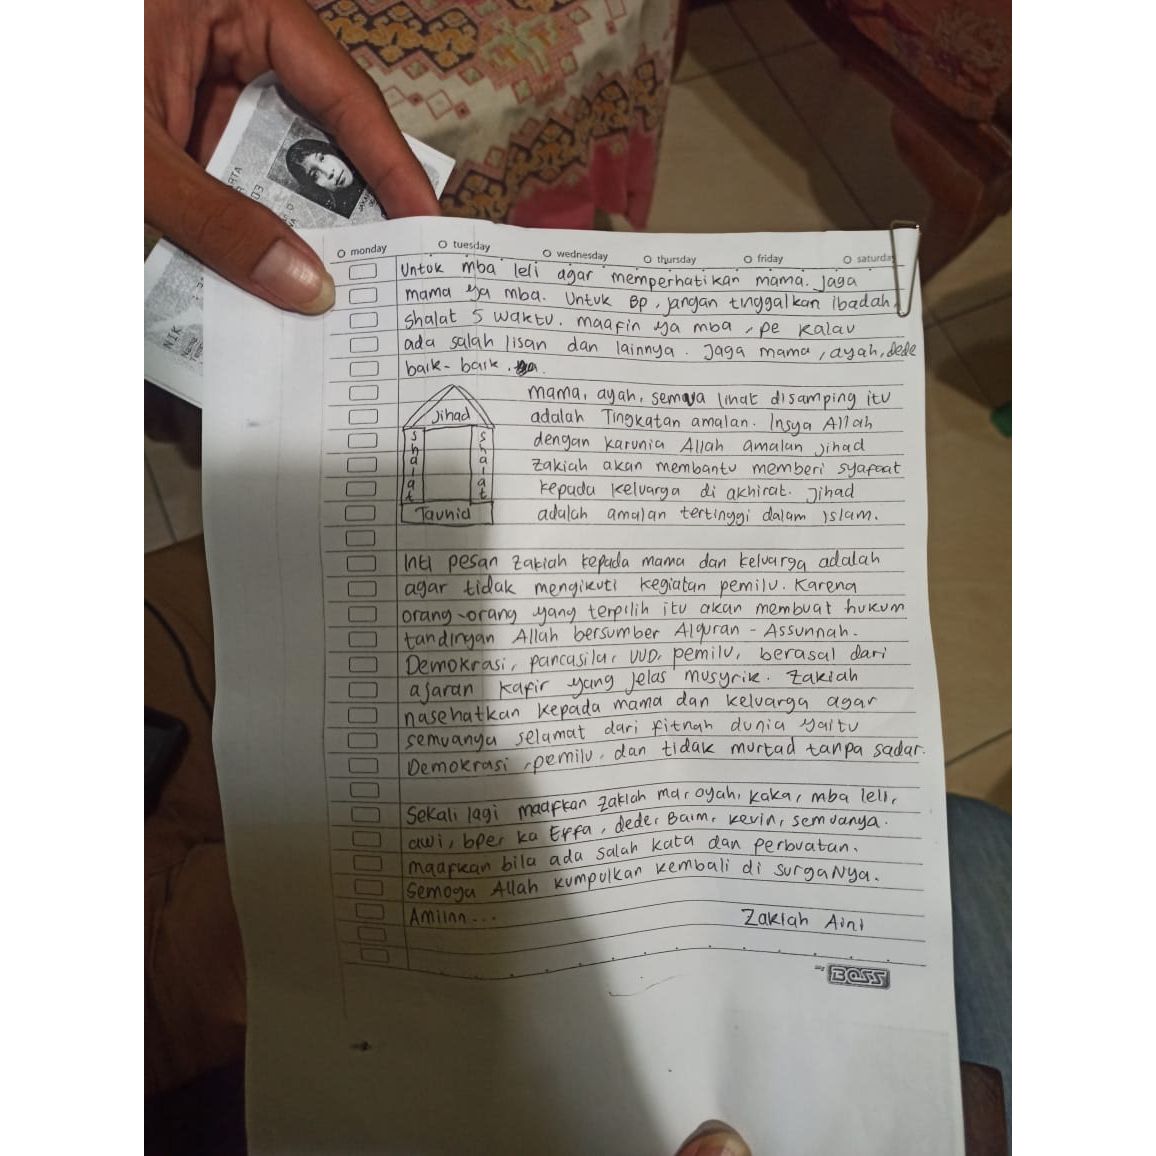 monday tuesday wednesday thursday friday saturday
Untuk mba leli agar memperhatikan mama. Jaga
mama ya mba. Untuk Bp, jangan tinggalkan ibadah,
Shalat 5 waktu. maafin ya mba, pe kalau
ada salah lisan dan lainnya. Jaga mama, ayah, dede
baik-baik.
mama, ayah, semua lihat disamping itu
Jihad
adalah Tingkatan amalan. Insya Allah
dengan karunia Allah amalan jihad
Shalat
Shalat
Zakiah akan membantu memberi syafaat
kepada keluarga di akhirat. Jihad
Tauhid
adalah amalan tertinggi dalam Islam.
Inti pesan Zakiah kepada mama dan keluarga adalah
agar tidak mengikuti kegiatan pemilu. Karena
orang-orang yang terpilih itu akan membuat hukum
tandingan Allah bersumber Alquran - Assunnah.
Demokrasi, pancasila, UUD, pemilu, berasal dari
ajaran kafir yang jelas musyrik. Zakiah
nasehatkan kepada mama dan keluarga agar
semuanya selamat dari fitnah dunia yaitu
Demokrasi, pemilu, dan tidak murtad tanpa sadar.
Sekali lagi maafkan Zakiah ma, ayah, kaka, mba leli,
awi, bper ka Effa, dede, Baim, kevin, semuanya.
maafkan bila ada salah kata dan perbuatan.
Semoga Allah kumpulkan kembali di surgaNya.
Amiinn...
Zakiah Aini
BOSS
NIK